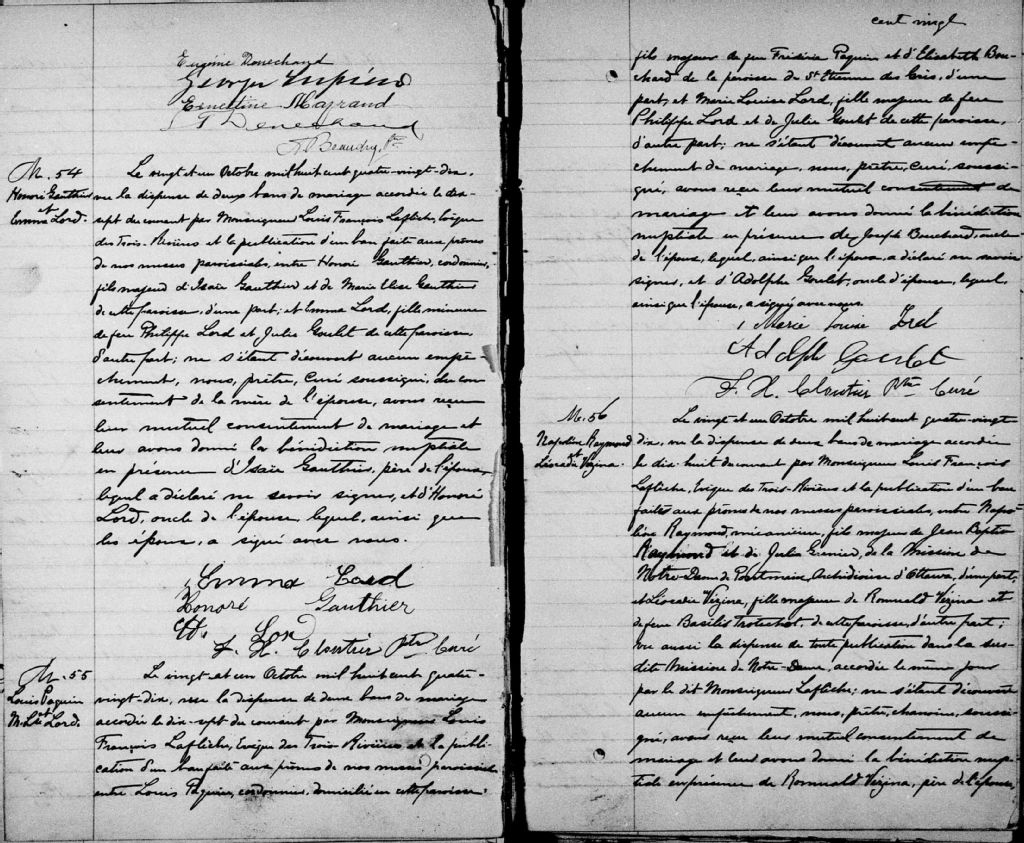 Eugénie Denechaud
George
Ernestine Majrand
Denechaud
Beaudry, Ptre
M. 54
Honoré Gauthier
et
Emma Lord.
Le vingt et un Octobre mil huit cent quatre-vingt-dix,
vu la dispense de deux bans de mariage accordée le dix-
sept du courant par Monseigneur Louis François Laflèche, Evêque
des Trois-Rivières et la publication d'un ban faite aux prônes
de nos messes paroissiales, entre Honoré Gauthier, cordonnier,
fils majeur d'Isaïe Gauthier et de Marie Elise Gauthier
de cette paroisse, d'une part; et Emma Lord, fille mineure
de feu Philippe Lord et Julie Goulet de cette paroisse
d'autre part; ne s'étant découvert aucun empê-
chement, nous, prêtre, Curé soussigné, du con-
sentement de la mère de l'épouse, avons reçu
leur mutuel consentement de mariage et
leur avons donné la bénédiction nuptiale
en présence d'Isaïe Gauthier, père de l'époux,
lequel a déclaré ne savoir signer, et d'Honoré
Lord, oncle de l'épouse, lequel, ainsi que
les époux, a signé avec nous.
Emma Lord
Honoré Gauthier
H. Lord
F. X. Cloutier Ptre Curé
M. 55
Louis Paquin
et
M. Lse Lord.
Le vingt et un Octobre mil huit cent quatre-
vingt-dix, vu la dispense de deux bans de mariage
accordée le dix-sept du courant par Monseigneur Louis
François Laflèche, Evêque des Trois Rivières et la publi-
cation d'un ban faite aux prônes de nos messes paroissiales
entre Louis Paquin, cordonnier, domicilié en cette paroisse.
cent vingt
fils majeur de feu Frédéric Paquin et d'Elisabeth Bou-
chard de la paroisse de St Etienne des Grès, d'une
part; et Marie Louise Lord, fille majeure de feu
Philippe Lord et de Julie Goulet de cette paroisse,
d'autre part; ne s'étant découvert aucun empê-
chement de mariage, nous, prêtre, Curé soussi-
gné, avons reçu leur mutuel consentement de
mariage et leur avons donné la bénédiction
nuptiale en présence de Joseph Bouchard, oncle
de l'époux, lequel, ainsi que l'époux, a déclaré ne savoir
signer, et d'Adolphe Goulet, oncle d'épouse, lequel,
ainsi que l'épouse, a signé avec nous.
Marie Louise Lord
Adolph Goulet
F. X. Cloutier Ptre Curé
M. 56
Napoléon Raymond
et
Léocadie Vézina.
Le vingt et un Octobre mil huit cent quatre-vingt
dix, vu la dispense de deux bans de mariage accordée
le dix-huit du courant par Monseigneur Louis François
Laflèche, Evêque des Trois-Rivières et la publication d'un ban
faite aux prônes de nos messes paroissiales, entre Napo-
léon Raymond, mécanicien, fils majeur de Jean Baptiste
Raymond et de Julie Grenier, de la Mission de
Notre-Dame de Pontmain, Archidiocèse d'Ottawa, d'une part,
et Léocadie Vézina, fille majeure de Romuald Vézina et
de feue Basilis Trotechot, de cette paroisse, d'autre part;
vu aussi la dispense de toute publication dans la sus-
dite Mission de Notre-Dame, accordée le même jour
par le dit Monseigneur Laflèche; ne s'étant découvert
aucun empêchement, nous, prêtre, chanoine, soussi-
gné, avons reçu leur mutuel consentement de
mariage et leur avons donné la bénédiction nup-
tiale en présence de Romuald Vézina, père de l'épouse,